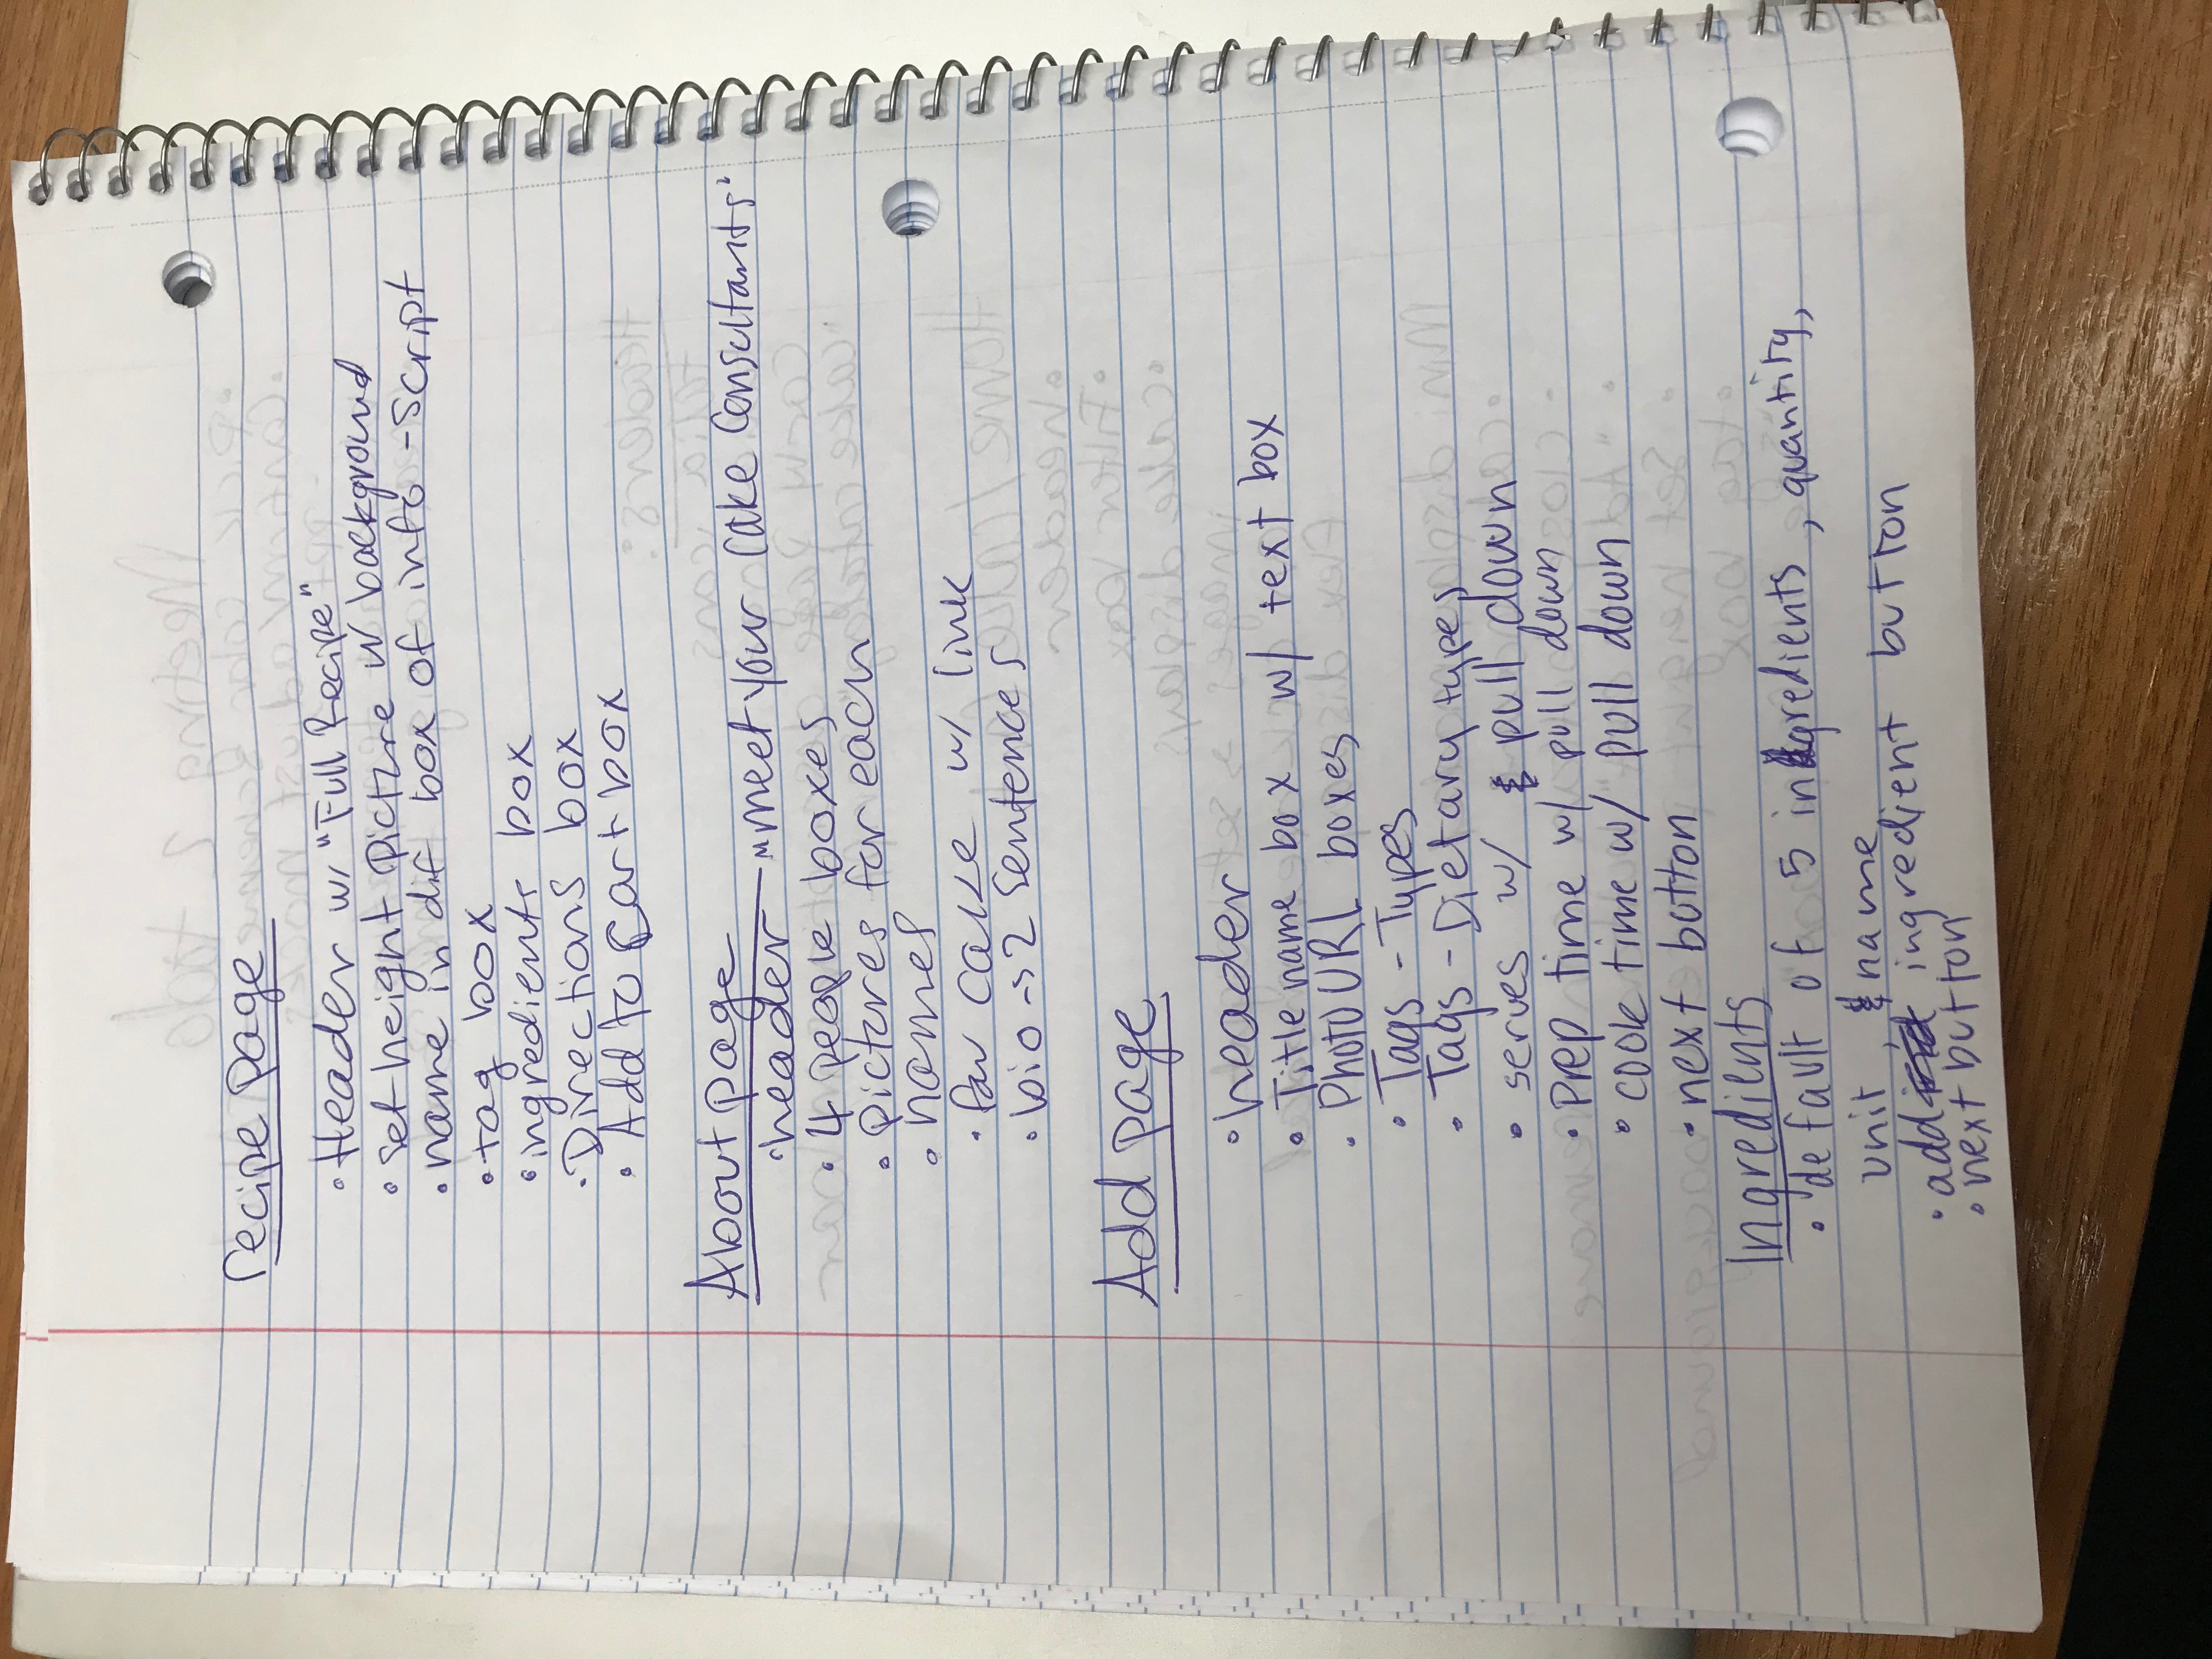 recipe page
• Header w/ "Full Recipe"
• set height picture w background
• name in dif box of info - script
• tag box
• ingredients box
• Directions box
• Add to cart box
About page
• header - "meet your Cake Consultants"
• 4 people boxes
• pictures for each
• names
• fav cake w/ link
• bio -> 2 sentences
Add page
• header
• Title name box w/ text box
• Photo URL boxes
• Tags - Types
• Tags - Dietary types
• serves w/ pull down
• Prep time w/ pull down
• cook time w/ pull down
• next button
Ingredients
• default of 5 ingredients, quantity,
unit, & name
• add ingredient button
• next button
Meeting 2 todo
• Pick color scheme
• Confirm/adjust mocks
Headers:
• header
• Filter box
• cake displays
• tag box